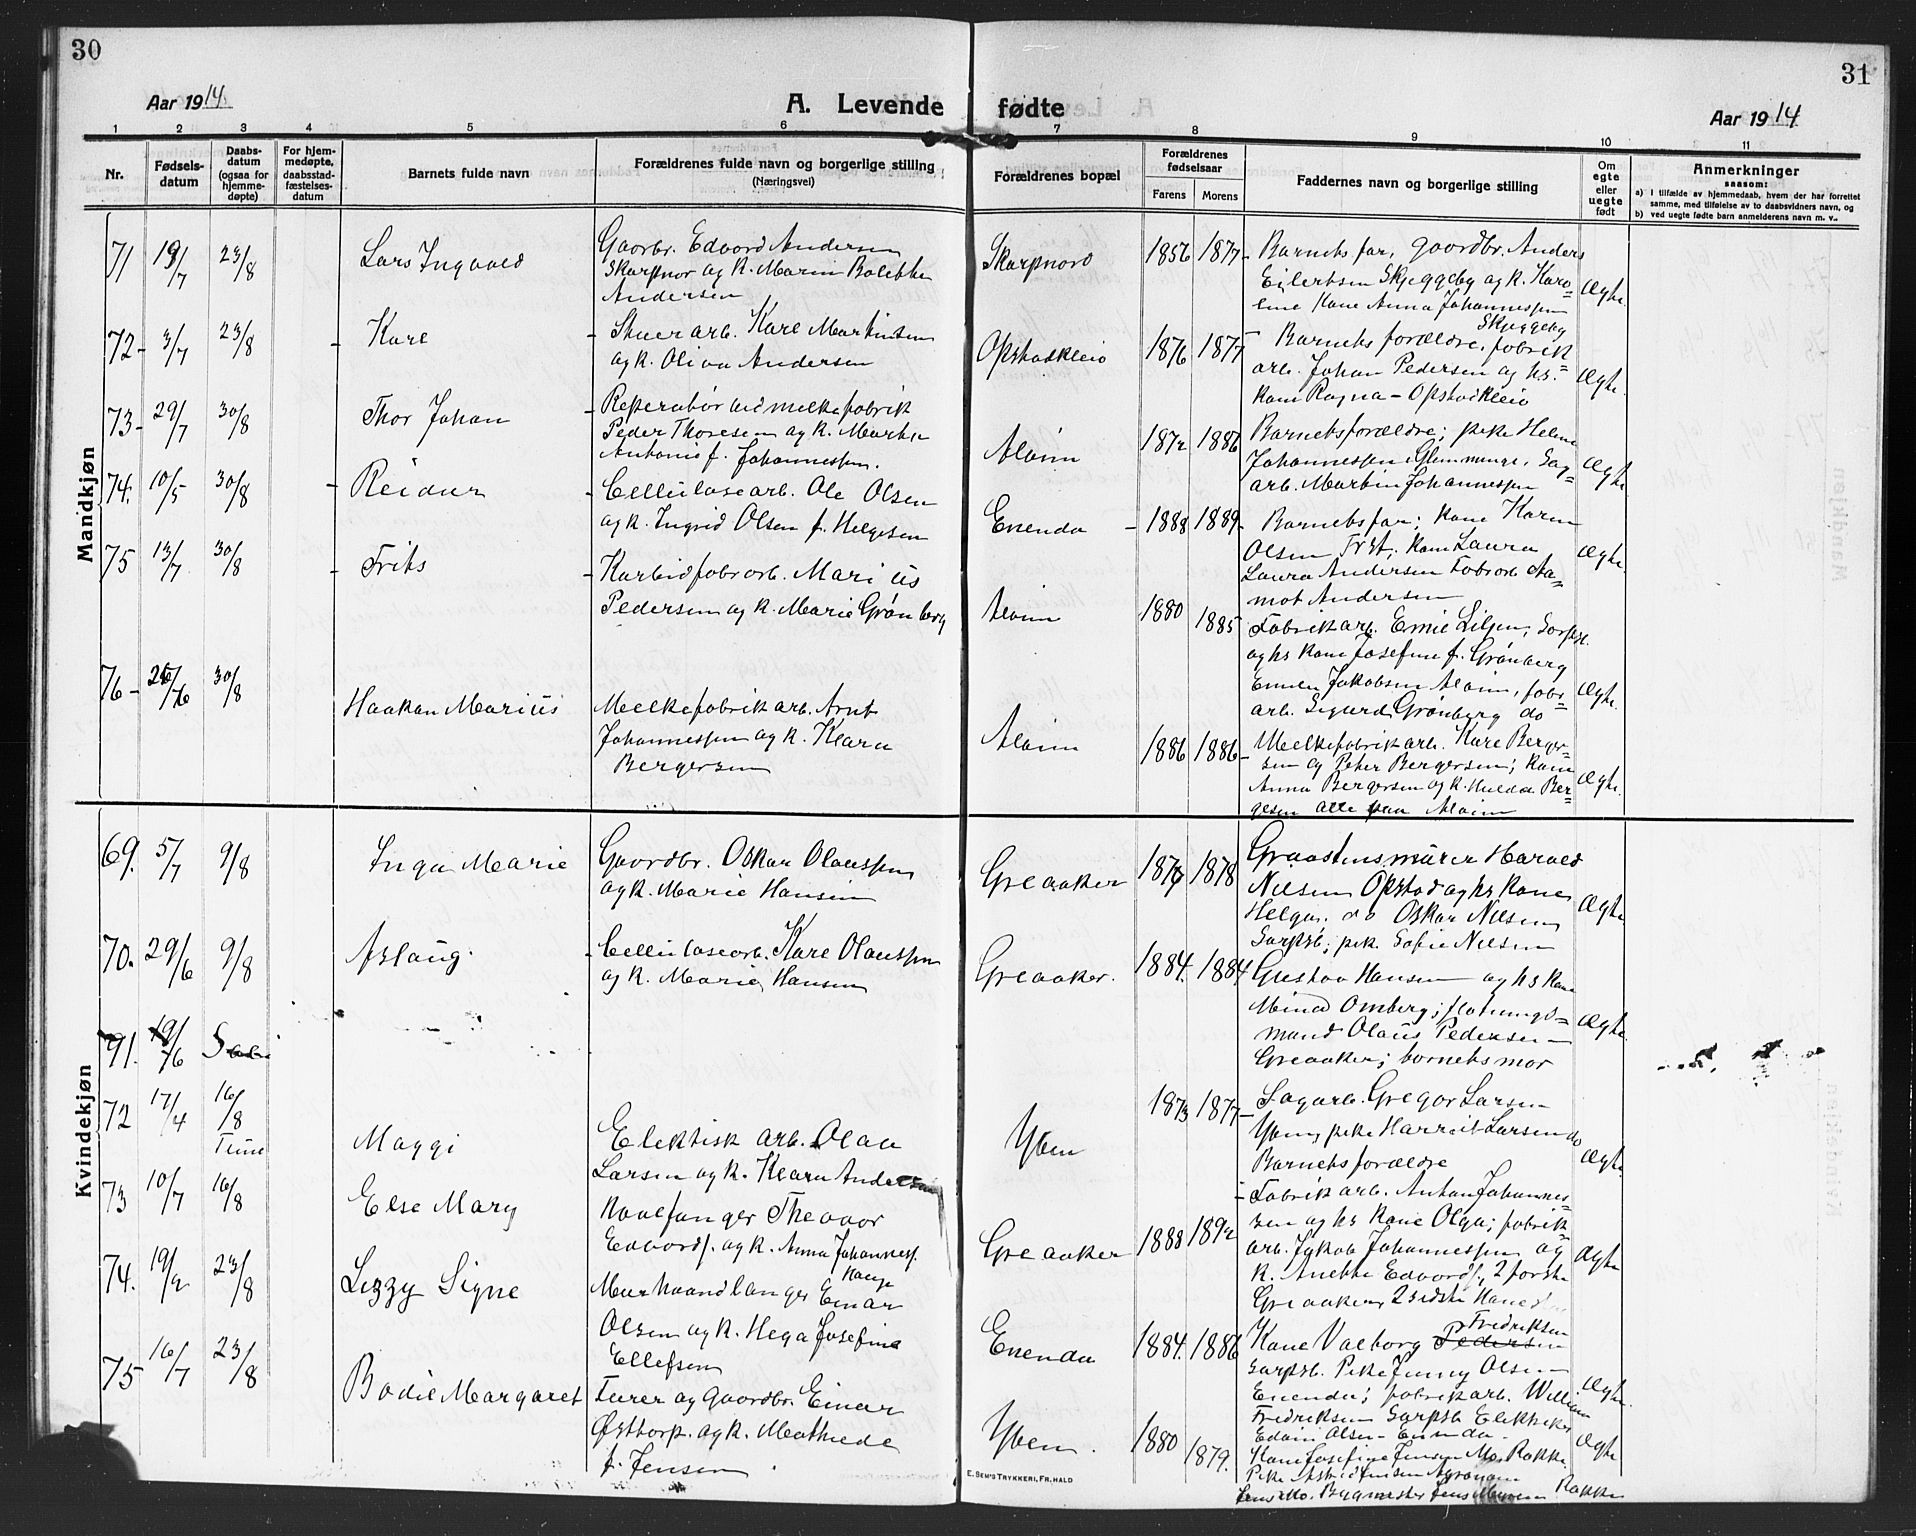 30
Aar 1914.
A. Levende
1 2 3 4 5 6
Nr.
Fødsels-
datum
Daabs-
datum
(ogsaa for
hjemme-
døpte)
For hjem-
medøpte,
daabsstad-
fæstelses-
datum
Barnets fulde navn
Forældrenes fulde navn og borgerlige stilling
(Næringsvei)
Mandkjøn
71 19/7 23/8 Lars Ingvald
Gaardbr. Edvard Andersen
Skarpnor og k. Marin Bolette
Andersen
72 - 3/7 23/8 - Kare
- Skuerarb. Kare Martinsen
og k. Oliva Andersen
73 - 29/7 30/8 Thor Johan
- Reperatør ved melkefabrik
Peder Thoresen og k. Marthe
Antonie f. Johannessen.
74. 10/5 30/8 - Reidar
- Cellulosearb. Ole Olsen
og k. Ingrid Olsen f. Helgesen
75 13/7 30/8 - Frits
- Karbidfabrarb. Marius
Pedersen og k. Marie Grønberg
76 - 26/6 30/8 Haakon Marius
Melkefabrikarb. Arnt
Johannessen og k. Klara
Bergersen
Kvindekjøn
69. 5/7 9/8 Inga Marie
Gaardbr. Oskar Olaussen
og k. Marie Hansen
70. 29/6 9/8 Aslaug.
- Cellulosearb. Kare Olaussen
og k. Marie Hansen
71. 19/6
72 17/4 16/8
Tune
Maggi
Elektrisk arb. Olav
Larsen og k. Klara Andersen
73 10/7 16/8 Else Mary
Kaalfanger Theodor
Edvards. og k. Anna Johanness.
74. 19/2 23/8 Lizzy Signe
Murhaandlanger Einar
Olsen og k. Hega Josefine
Ellefsen
75 16/7 23/8 Bodil Margaret
Furer og Gaardbr. Einar
Østtorp. og k. Mathilde
f. Jensen
31
Aar 1914
fødte
7 8 9 10 11
Forældrenes bopæl
Forældrenes
fødselsaar
Farens Morens
Faddernes navn og borgerlige stilling
Om
egte
eller
uegte
født
Anmerkninger
saasom:
a) I tilfælde av hjemmedaab, hvem der har forrettet
samme, med tilføielse av to daabsvidners navn, og
b) ved uegte fødte barn anmelderens navn m. v.
Skarpnord 1856 1877 -
Barnets far, gaardbr. Anders
Eilertsen Skjeggeby og k. Karo=
line Kone Anna Johannessen
Skjeggeby
Ægte.
Opstadkleiv 1876 1877
Barnets forældre, fabrik
arb. Johan Pedersen og hs.
kone Ragna - Opstadkleiv
Ægte.
Alvim 1872 1886
Barnets forældre; pike Helene
Johannessen Glemminge, Sag=
arb. Martin Johannessen
Ægte
Enenda - 1888 1889 -
Barnets far; kone Karen
Olsen Frst, kone Laura
Laura Andersen Fabrarb Aa=
mot Andersen
Ægte.
Alvim 1880 1885
Fabrikarb. Emil Liljen, Sarpsb.
og hs kone Josefine f. Grønberg
Emilie Jakobsen Alvim, fabr=
arb. Sigurd Grønberg do
Ægte.
Alvim 1886 1886 -
Melkefabrikarb. Kare Berger=
sen og Peter Bergersen; kone
Anna Bergersen og k. Hulda Ber=
gesen alle paa Alvim
Ægte.
Greaaker 1874 1878
Graastensmurer Harald
Nilsen Opstad og hs kone
Helga. do Oskar Nilsen
Sarpsb; pik. Sofie Nilsen
Ægte
Greaaker. 1884. 1884
Gustav Hansen og hs kone
Mina Omberg; fløtnings=
mand Olaus Pedersen
Greaaker; barnets mor
Ægte
Yven 1873 1877 -
Sagarb. Gregor Larsen
Yven, pike Harriet Larsen do
Barnets forældre
Ægte
Greaaker 1888 1892
Fabrikarb. Anton Johannes=
sen og hs kone Olga; fabrik=
arb. Jakob Johannessen og
k. Anette Edvards, 2 første
Greaaker, 2 sidste
Ægte
Enenda 1884. 1886
Kone Valborg Fredriksen
Sarpsb. Pike Jenny Olsen
Enenda; fabrikarb. William
Fredriksen Sarpsb Elektriker
Edvin Olsen - Enenda -
Ægte.
Yven. 1880 1879.
Kone Josefine Jensen Mo, Rakke.
Pike Astrid Jensen Agronom
Jens Mo. Byggmester Jens Rakke
Ægte
E. SEM'S TRYKKERI, FR.HALD